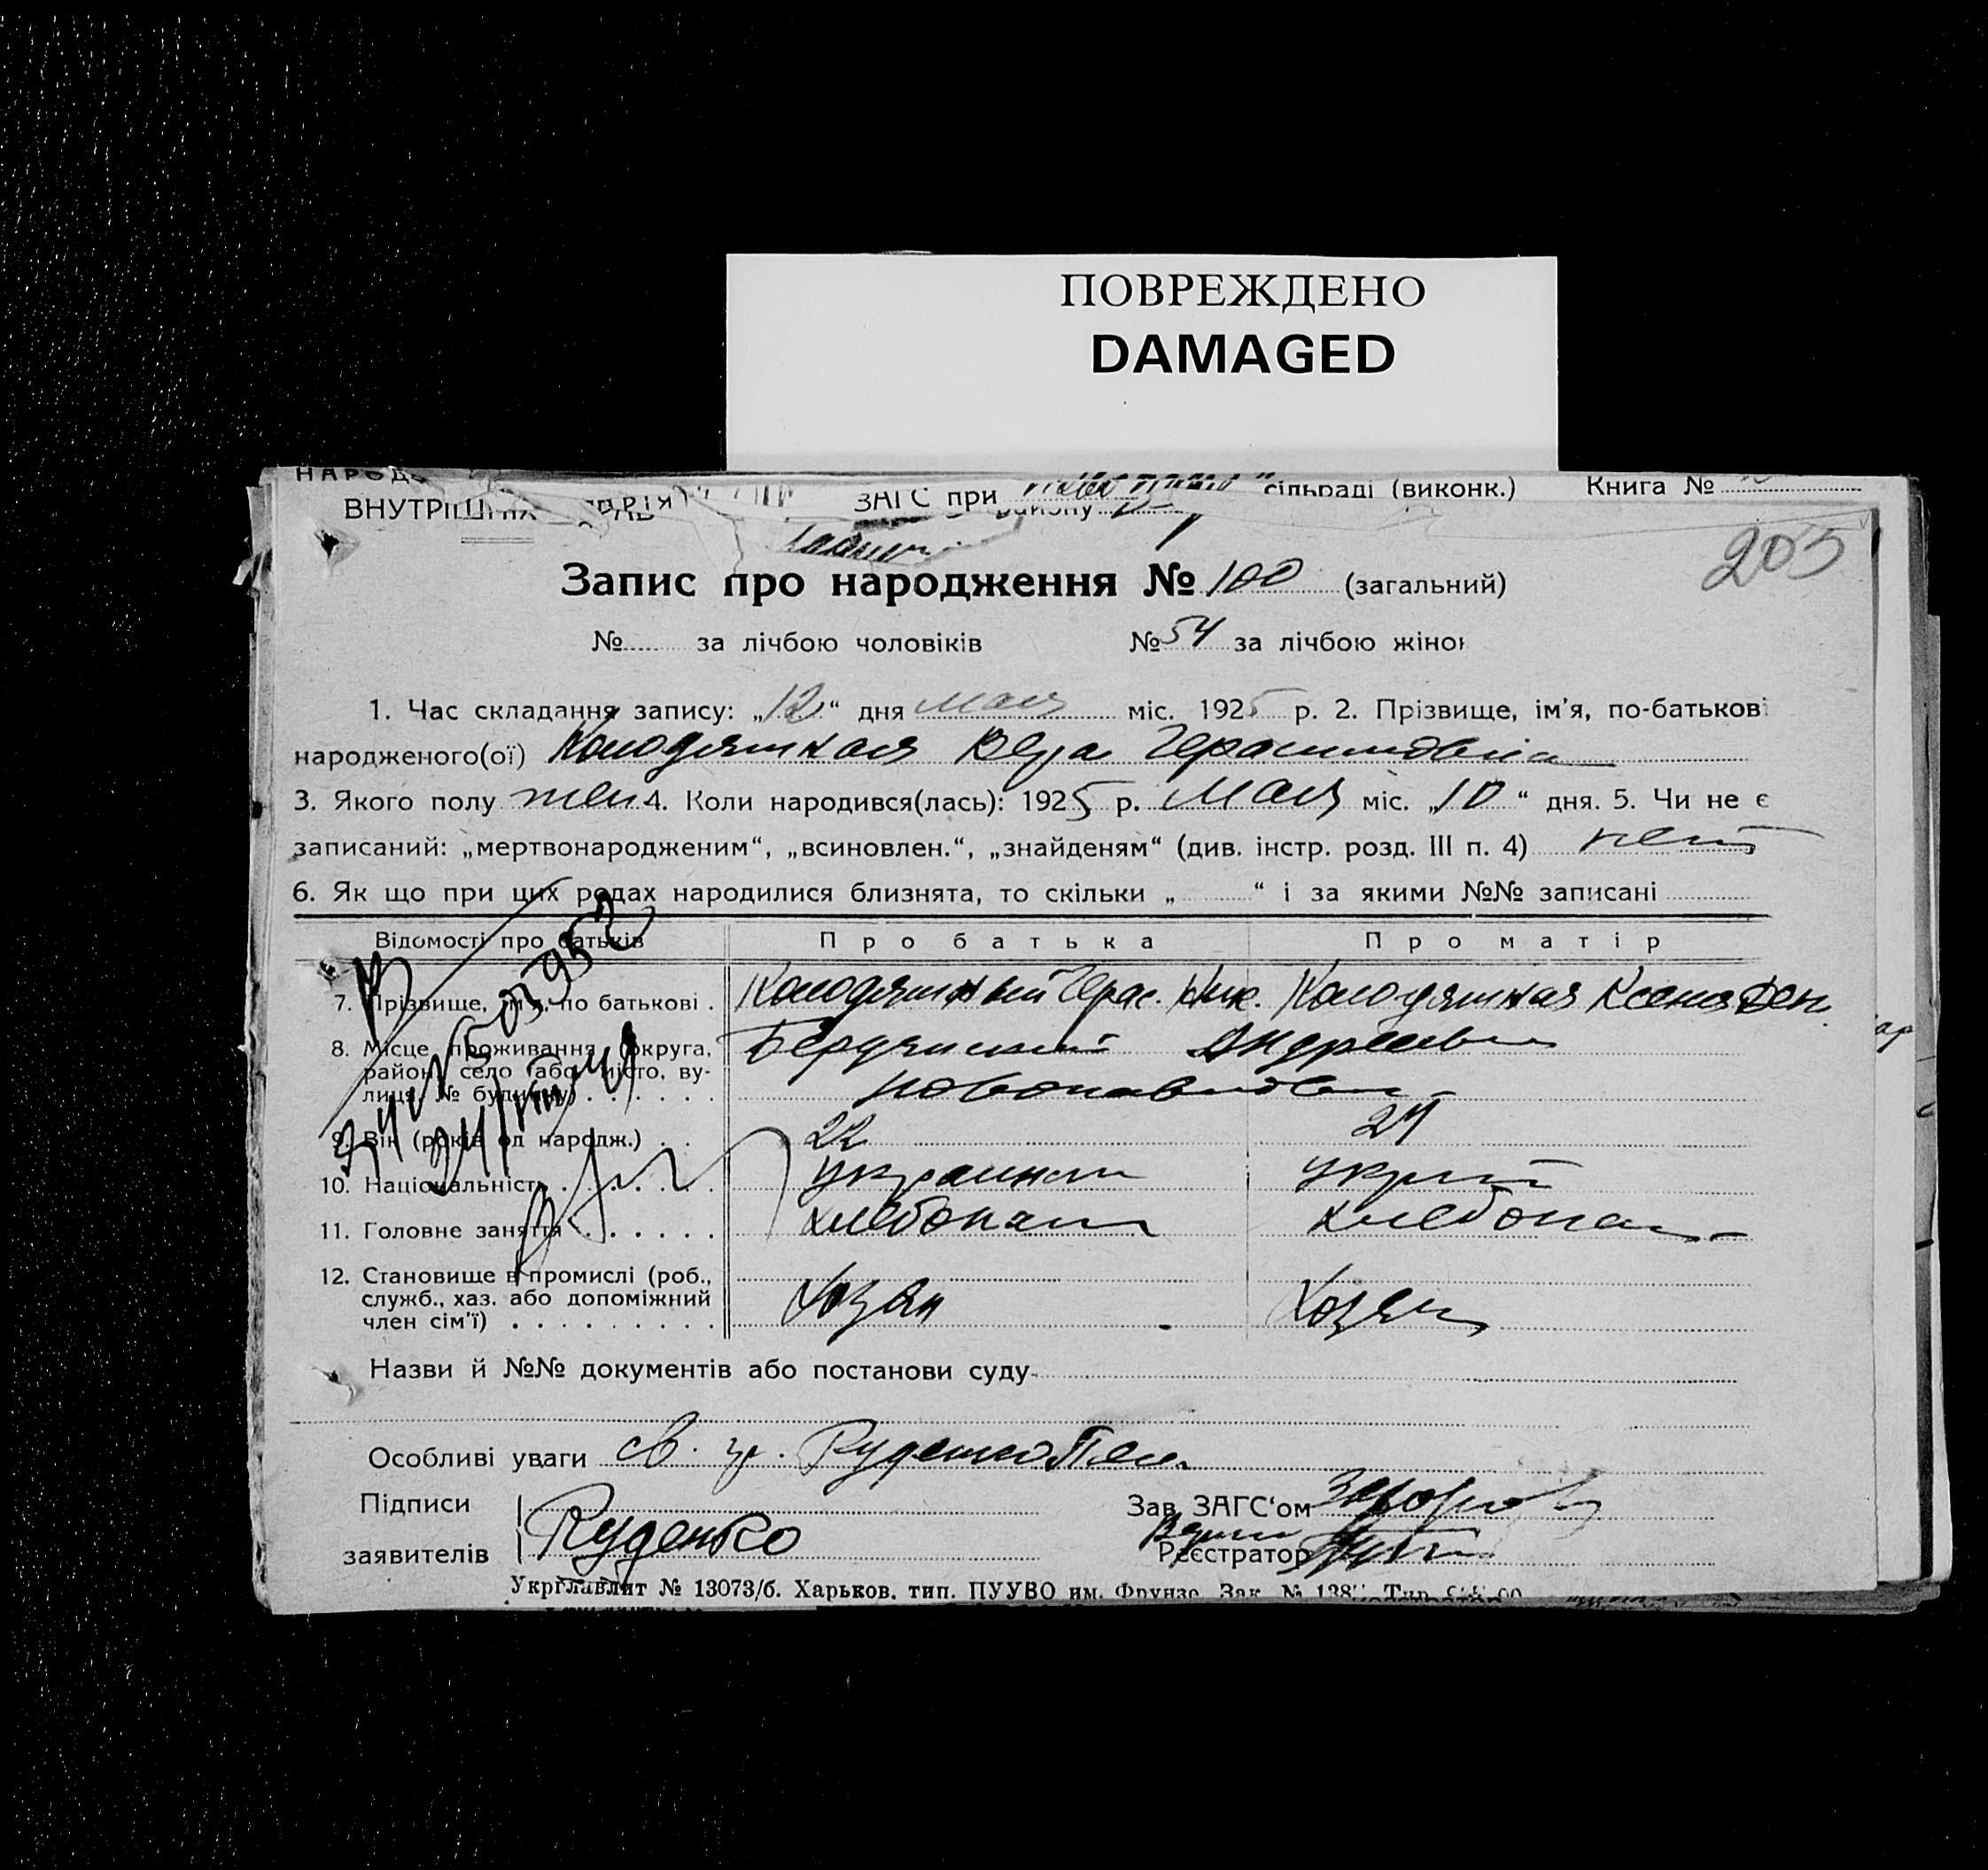 ПОВРЕЖДЕНО
DAMAGED
ЗАГС при сільраді (виконк.) Книга №
Запис про народження № 100 (загальний)
205
№ за лічбою чоловіків № 54 за лічбою жінок
1. Час складання запису: „12“ дня мая міс. 1925 р. 2. Прізвище, ім’я, по-батькові
народженого(ої) Колодяжная Вера Герасимовна
3. Якого полу жен 4. Коли народився(лась): 1925 р. мая міс. „10“ дня. 5. Чи не є
записаний: „мертвонародженим“, „всиновлен.“, „знайденям“ (див. інстр. розд. III п. 4) нет
6. Як що при цих родах народилися близнята, то скільки „ “ і за якими №№ записані
Відомості про батьків Про батька Про матір
7. Прізвище, ім’я, по батькові . Колодяжный Герас. Ник. Колодяжная Ксения Ден.
8. Місце проживання (округа, Бердянский Андреевк
район, село або місто, ву-
лиця, № будинку) . . . . . . Новопавловк
9. Вік (років од народж.) . . 22 24
10. Національність . . . . . . украинск укр
11. Головне заняття . . . . . . хлебопаш хлебопа
12. Становище в промислі (роб.,
служб., хаз. або допоміжний Хозяин Хозяй
член сім’ї) . . . . . . . . .
Назви й №№ документів або постанови суду
Особливі уваги св. гр. Руденко
Підписи Зав. ЗАГС‘ом
заявителів Руденко Реєстратор
Укрглавлит № 13073/б. Харьков, тип. ПУУВО им. Фрунзе. Зак. №